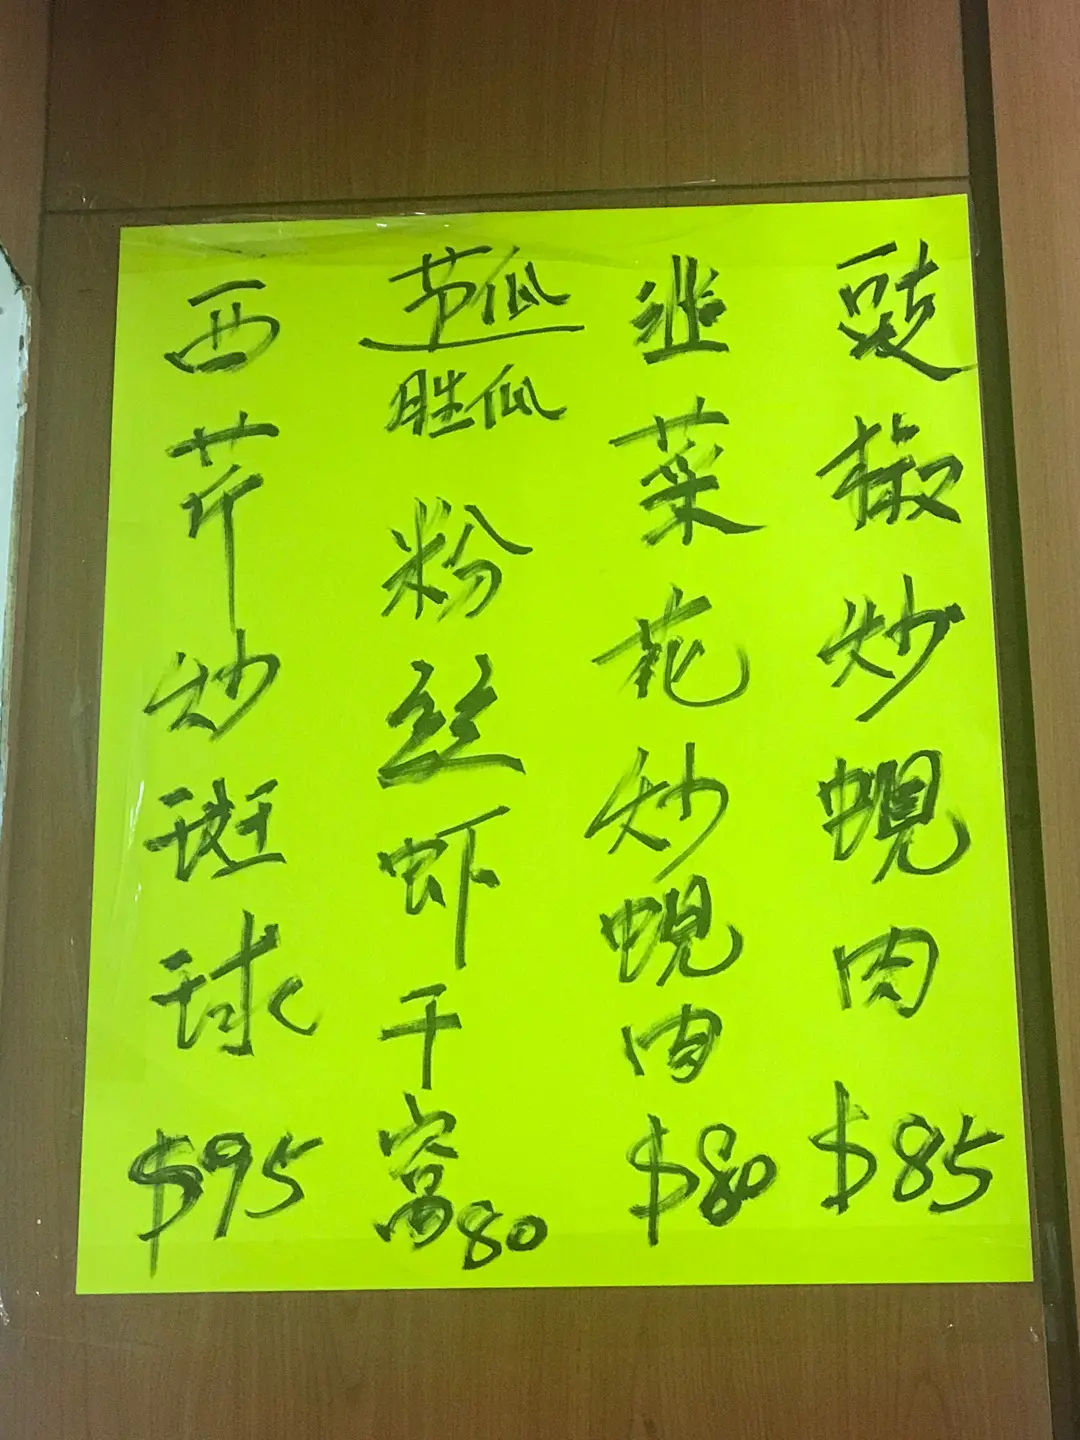 豉椒炒蜆肉 $85
韭菜花炒蜆肉 $80
节瓜
胜瓜
粉丝虾干窝 80
西芹炒斑球 $95